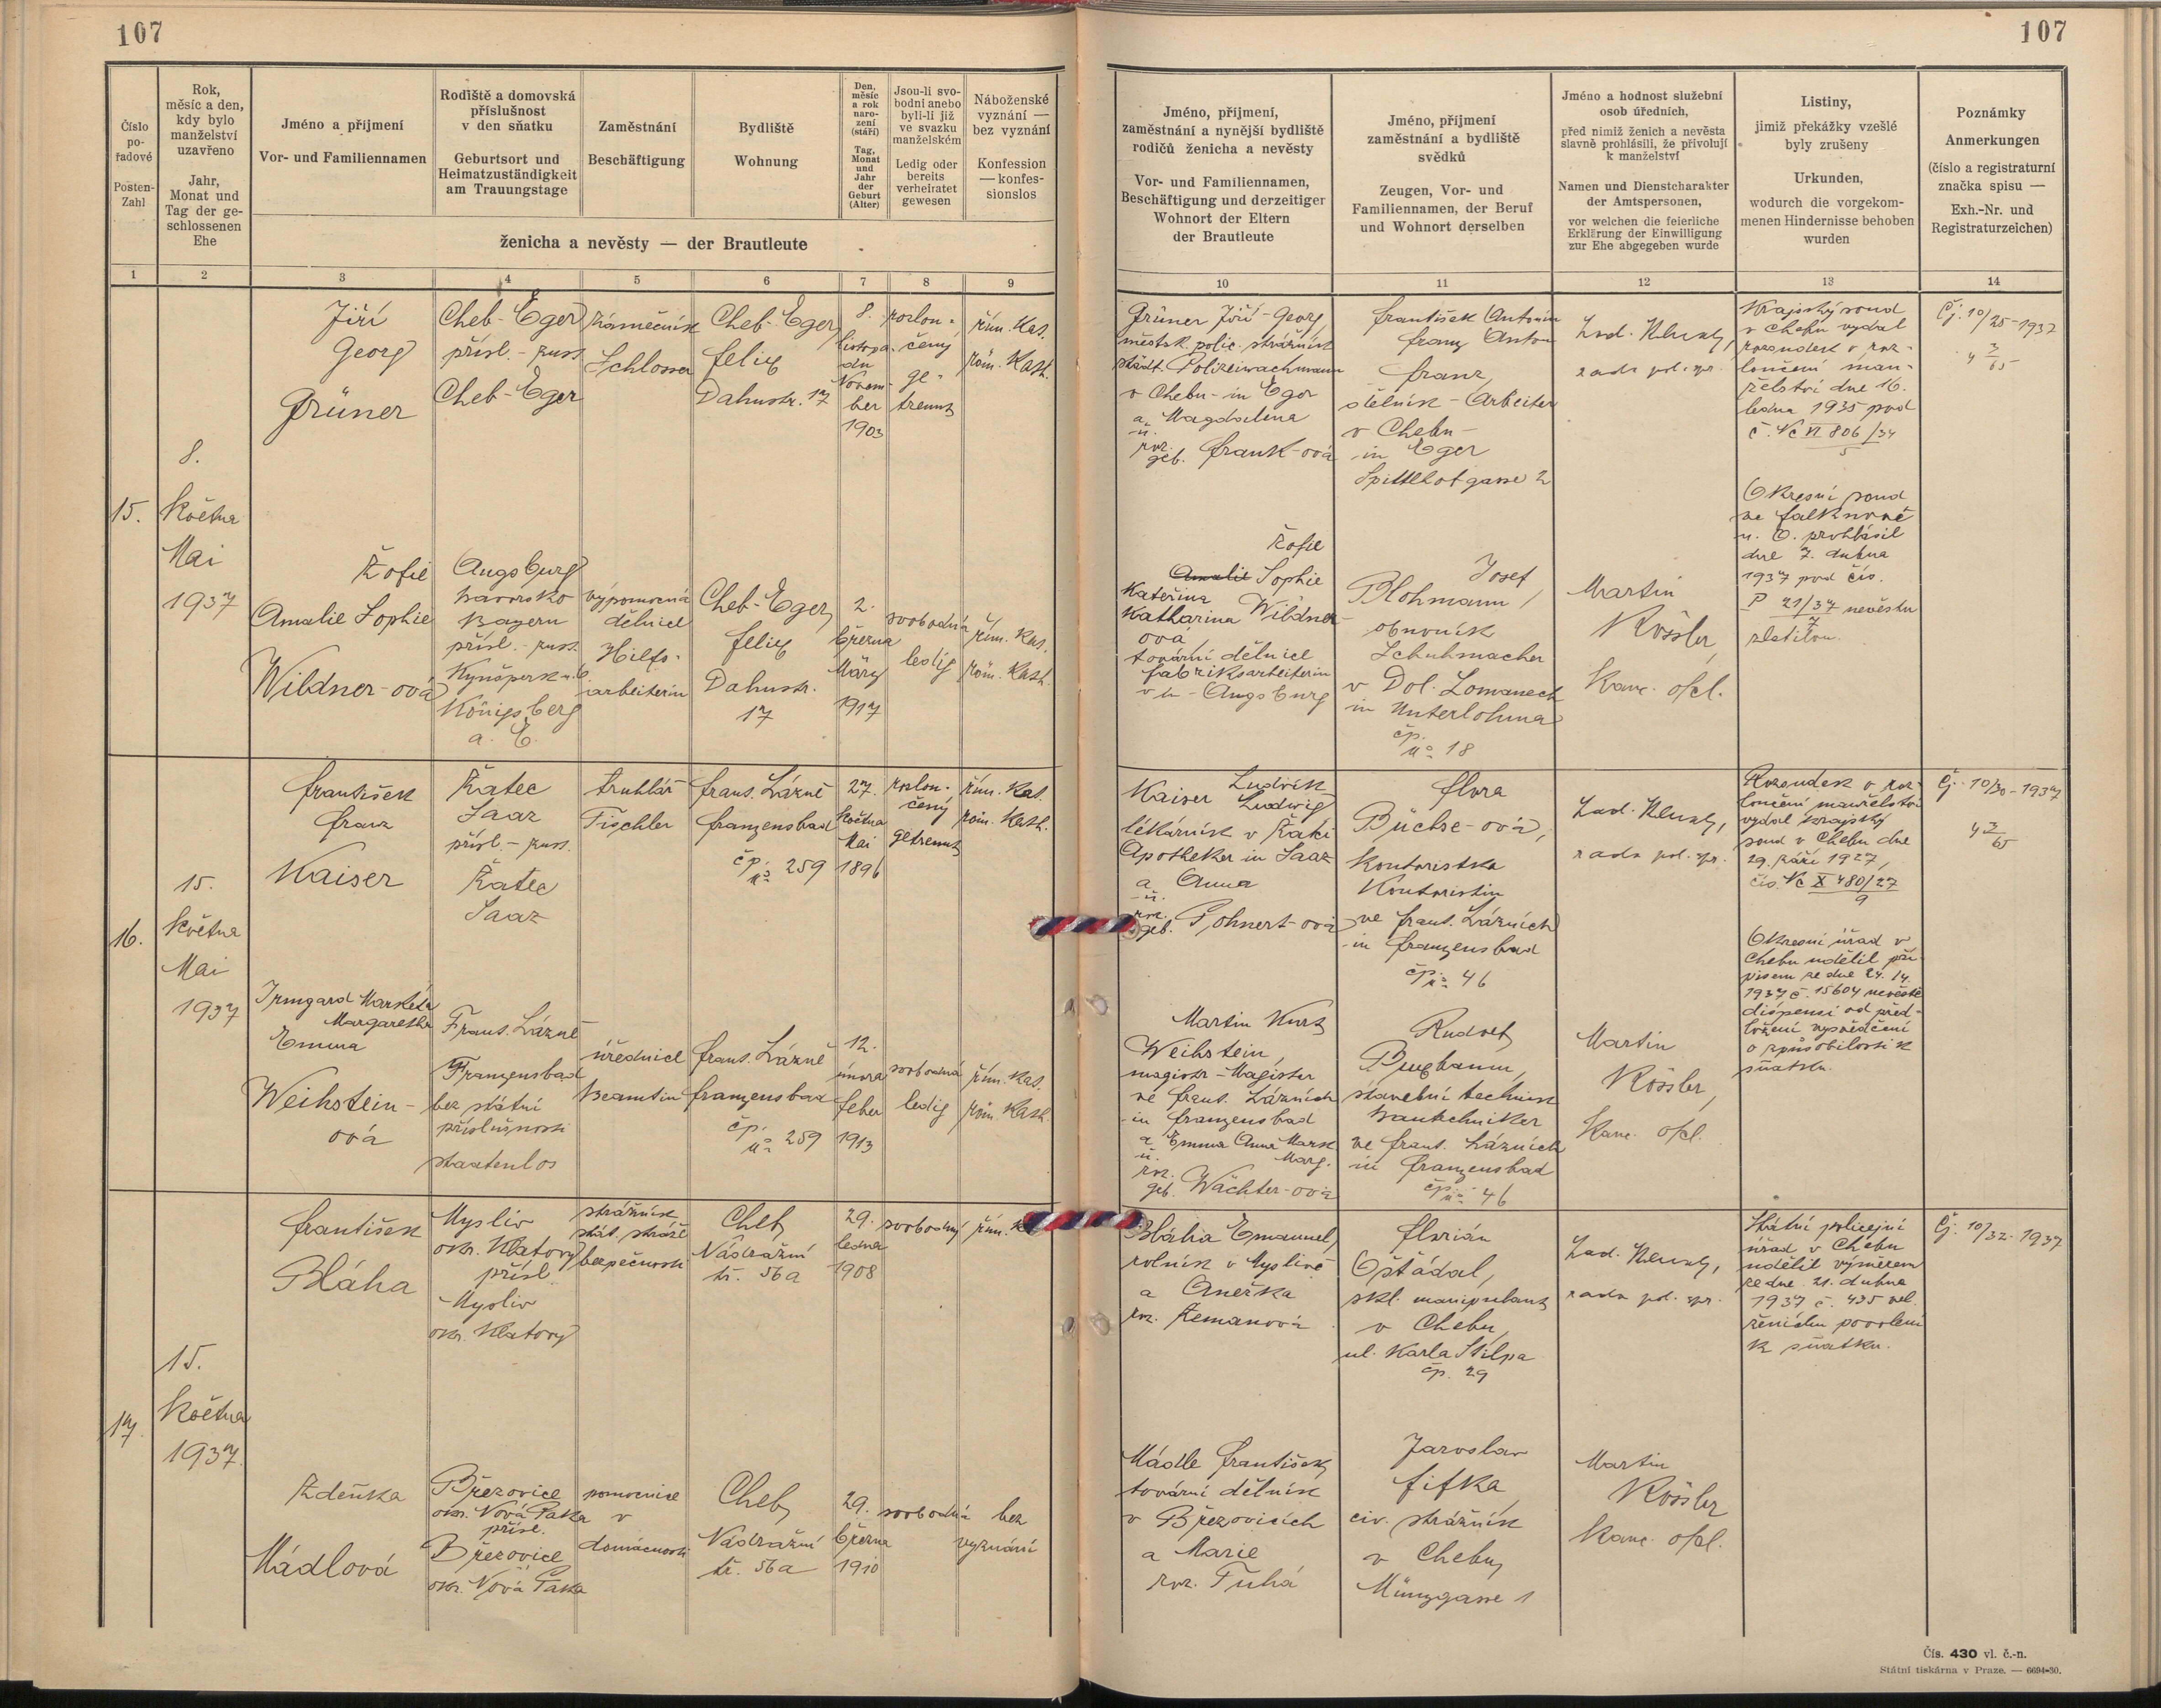 107
107
Číslo
po-
řadové
Posten-
Zahl
Rok,
měsíc a den,
kdy bylo
manželství
uzavřeno
Jahr,
Monat und
Tag der ge-
schlossenen
Ehe
Jméno a příjmení
Vor- und Familiennamen
Rodiště a domovská
příslušnost
v den sňatku
Geburtsort und
Heimatzuständigkeit
am Trauungstage
Zaměstnání
Beschäftigung
Bydliště
Wohnung
Den,
měsíc
a rok
naro-
zení
(stáří)
Tag,
Monat
und
Jahr
der
Geburt
(Alter)
Jsou-li svo-
bodni anebo
byli-li již
ve svazku
manželském
Ledig oder
bereits
verheiratet
gewesen
Náboženské
vyznání —
bez vyznání
Konfession
— konfes-
sionslos
ženicha a nevěsty — der Brautleute
1
2
3
4
5
6
7
8
9
Jméno, příjmení,
zaměstnání a nynější bydliště
rodičů ženicha a nevěsty
Vor- und Familiennamen,
Beschäftigung und derzeitiger
Wohnort der Eltern
der Brautleute
Jméno, příjmení
zaměstnání a bydliště
svědků
Zeugen, Vor- und
Familiennamen, der Beruf
und Wohnort derselben
Jméno a hodnost služební
osob úředních,
před nimiž ženich a nevěsta
slavně prohlásili, že přivolují
k manželství
Namen und Dienstcharakter
der Amtspersonen,
vor welchen die feierliche
Erklärung der Einwilligung
zur Ehe abgegeben wurde
Listiny,
jimiž překážky vzešlé
byly zrušeny
Urkunden,
wodurch die vorgekom-
menen Hindernisse behoben
wurden
Poznámky
Anmerkungen
(číslo a registraturní
značka spisu —
Exh.-Nr. und
Registraturzeichen)
10
11
12
13
14
15.
8.
Května
Mai
1937
Jiří
Georg
Grüner
Cheb-Eger
přísl. - zust.
Cheb-Eger
zámečník
Schlosser
Cheb-Eger
Felix
Dahnstr. 17
8.
listopa-
du
Novem-
ber
1903
rozlou-
čený
ge-
trennt
řím. kat.
röm. kath.
Grüner Jiří-Georg
městsk. polic. strážník
städt. Polizeiwachmann
v Chebu - in Eger
a Magdalena
u.
roz.
geb. Frank-ová
František Antonín
Franz Anton
Franz,
dělník - Arbeiter
v Chebu -
in Eger
Spittelhofgasse 2
rada pol. spr.
Krajský soud
v Chebu vydal
rozsudek o roz-
loučení man-
želství dne 16.
ledna 1935 pod
č. Nc VI 806/34
5
Čj. 10/25-1937
4 3/65
Žofie
Amalie Sophie
Wildner-ová
Augsburg
Bavorsko
Bayern
přísl. - zust.
Kynšperk n. O.
Königsberg
a. E.
výpomocná
dělnice
Hilfs-
arbeiterin
Cheb-Eger,
Felix
Dahnstr.
17
2.
března
März
1917
svobodná
ledig
řím. kat.
röm. kath.
Žofie
Amalie Sophie
Kateřina
Katharina Wildner-
ová
tovární dělnice
Fabriksarbeiterin
v in - Augsburg
Josef
Plohmann,
obuvník
Schuhmacher
v Dol. Lomanech
in Unterlohma
čp.
No 18
Martin
Kössler,
Kanc. ofcl.
Okresní soud
ve Falknově
n. O. prohlásil
dne 7. dubna
1937 pod čís.
P 21/37 nevěstu
7
zletilou.
16.
15.
Května
Mai
1937
František
Franz
Kaiser
Žatec
Saaz
přísl. - zust.
Žatec
Saaz
truhlář
Tischler
Frant. Lázně
Franzensbad
čp.
No 259
27.
května
Mai
1896
rozlou-
čený
getrennt
řím. kat.
röm. kath.
Ludvík
Kaiser Ludwig
lékárník v Žatci
Apotheker in Saaz
a Anna
u.
roz.
geb. Gohnert-ová
Flora
Büchse-ová,
kontoristka
Kontoristin
ve Frant. Lázních
in Franzensbad
čp.
No 46
rada pol. spr.
Rozsudek o roz-
loučení manželství
vydal krajský
soud v Chebu dne
29. září 1927,
čís. Nc X 480/27
9
Čj. 10/30-1937
4 3/65
Irmgard Markéta
Margarethe
Emma
Weihstein-
ová
Frant. Lázně
Franzensbad
bez státní
příslušnosti
staatenlos
úřednice
Beamtin
Frant. Lázně
Franzensbad
čp.
No 259
12.
února
Feber
1913
svobodná
ledig
řím. kat.
röm. kath.
Martin Kurt
Weihstein,
magistr - Magister
ve Frant. Lázních
in Franzensbad
a Emma Anna Mark.
u. Marg.
roz.
geb. Wächter-ová
Rudolf
stavební technik
Bautechniker
ve Frant. Lázních
in Franzensbad
čp.
No 46
Martin
Kössler,
Kanc. ofcl.
Okresní úřad v
Chebu udělil pří-
pisem ze dne 24./4.
1937 č. 15604 nevěstě
dispensi od před-
ložení vysvědčení
o způsobilosti k
sňatku.
17.
15.
Května
1937.
František
Bláha
Mysliv
okr. Klatovy
přísl.
Mysliv
okr. Klatovy
strážník
stát. stráže
bezpečnosti
Cheb,
Nádražní
tř. 56a
29.
ledna
1908
svobodný
řím. k
Bláha Emanuel,
rolník v Myslivě
a Anežka
roz. Zemanová
Florián
Opřádal,
skl. manipulant
v Chebu,
ul. Karla Stilpa
čp. 29
rada pol. spr.
Státní policejní
úřad v Chebu
udělil výměrem
ze dne 21. dubna
1937 č. 435 
ženichu povolení
k sňatku.
Čj. 10/32-1937
Zdeňka
Mádlová
Březovice
okr. Nová Paka
přísl.
Březovice
okr. Nová Paka
pomocnice
v
domácnosti
Cheb,
Nádražní
tř. 56a
29.
března
1910
svobodná
bez
vyznání
Mádle František,
tovární dělník
v Březovicích
a Marie
roz. Tuhá
Jaroslav
Fifka,
civ. strážník
v Chebu,
Münzgasse 1
Martin
Kössler
Kanc. ofcl.
Čís. 430 vl. č.-n.
Státní tiskárna v Praze. — 6694-30.